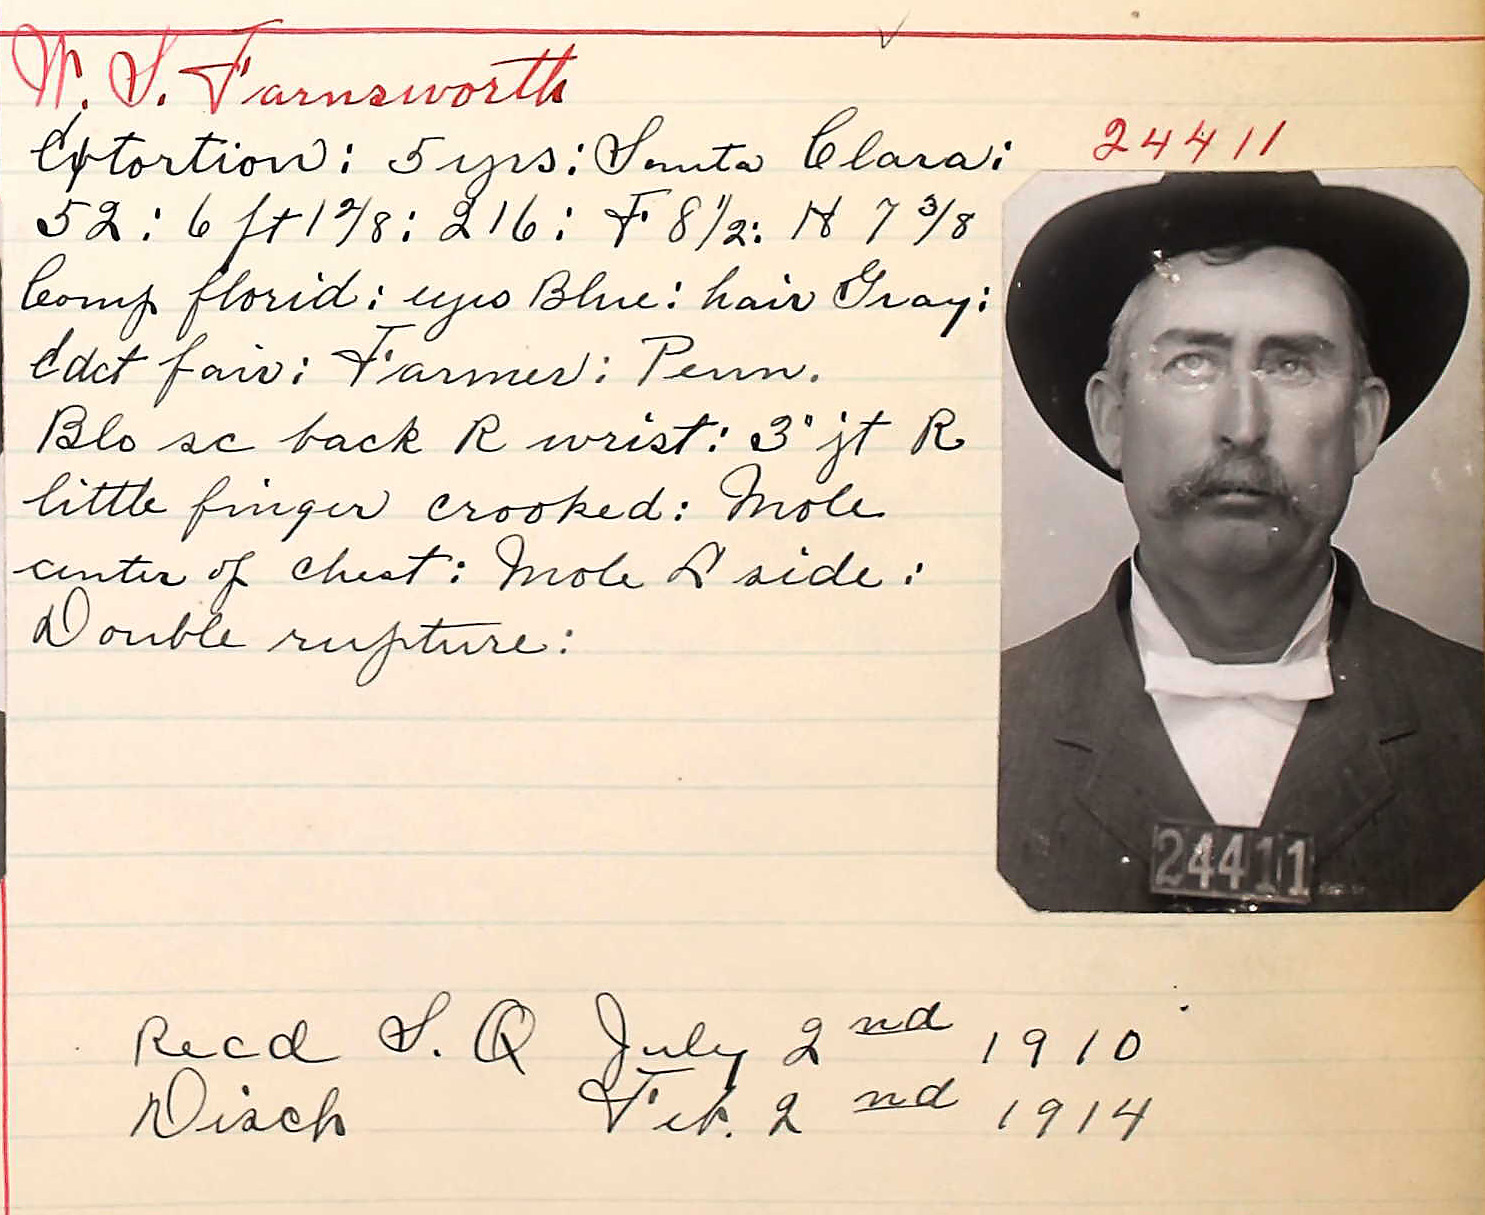 W. S. Farnsworth
Extortion: 5 yrs: Santa Clara: 24411
52: 6 ft 1 2/8: 216: F 8 1/2: H 7 3/8
Comp florid: eyes Blue: hair Gray:
Edct fair: Farmer: Penn.
Blo sc back R wrist: 3" jt R
little finger crooked: Mole
center of chest: Mole L side:
Double rupture:
24411
Recd S. Q July 2nd 1910
Disch Feb. 2nd 1914